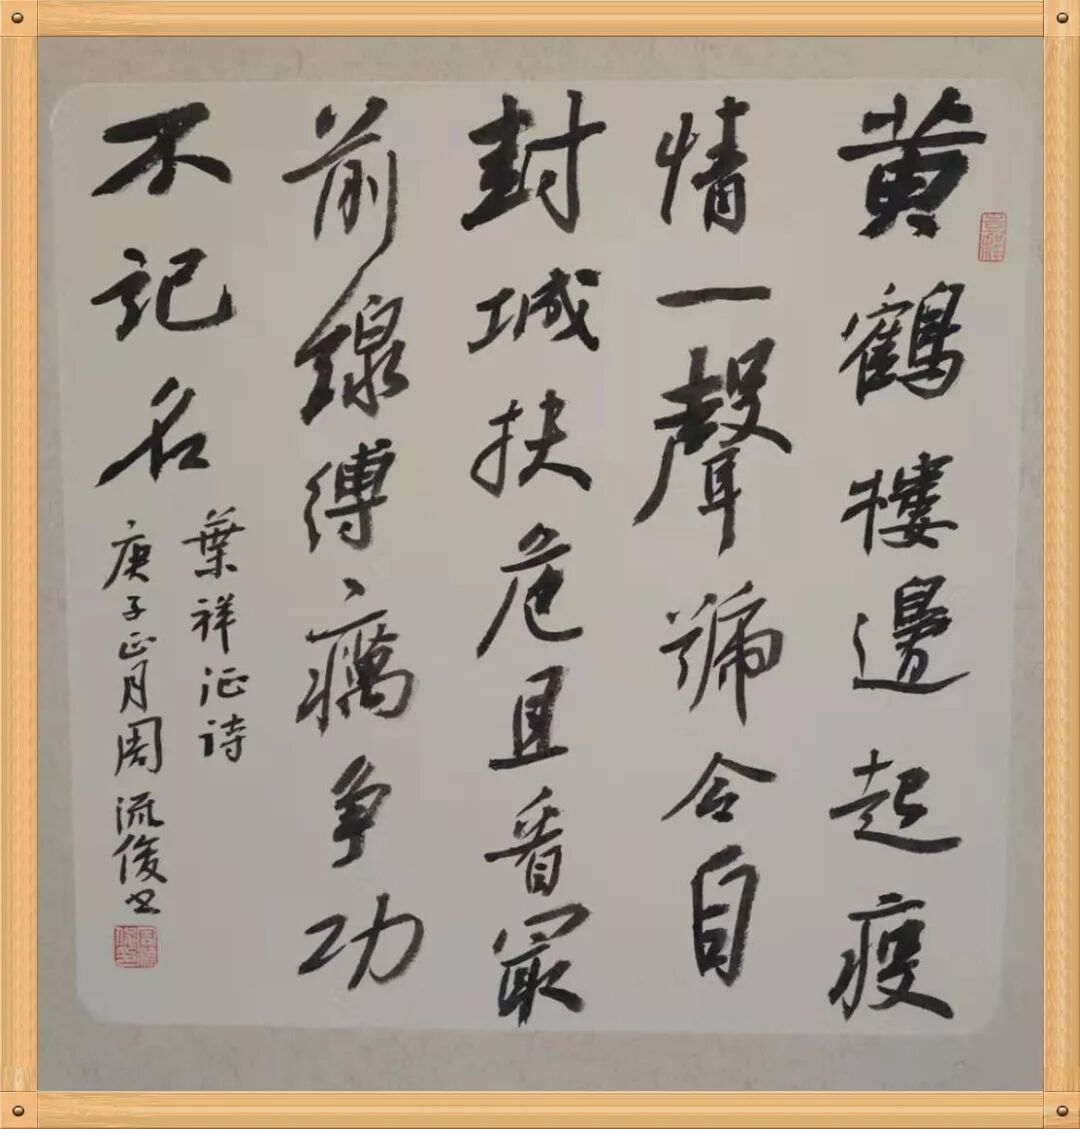 黄鶴樓邊起疫
情一聲號令自
封城扶危且看最
前線縛癘争功
不記名
葉祥诗
庚子正月周流俊书